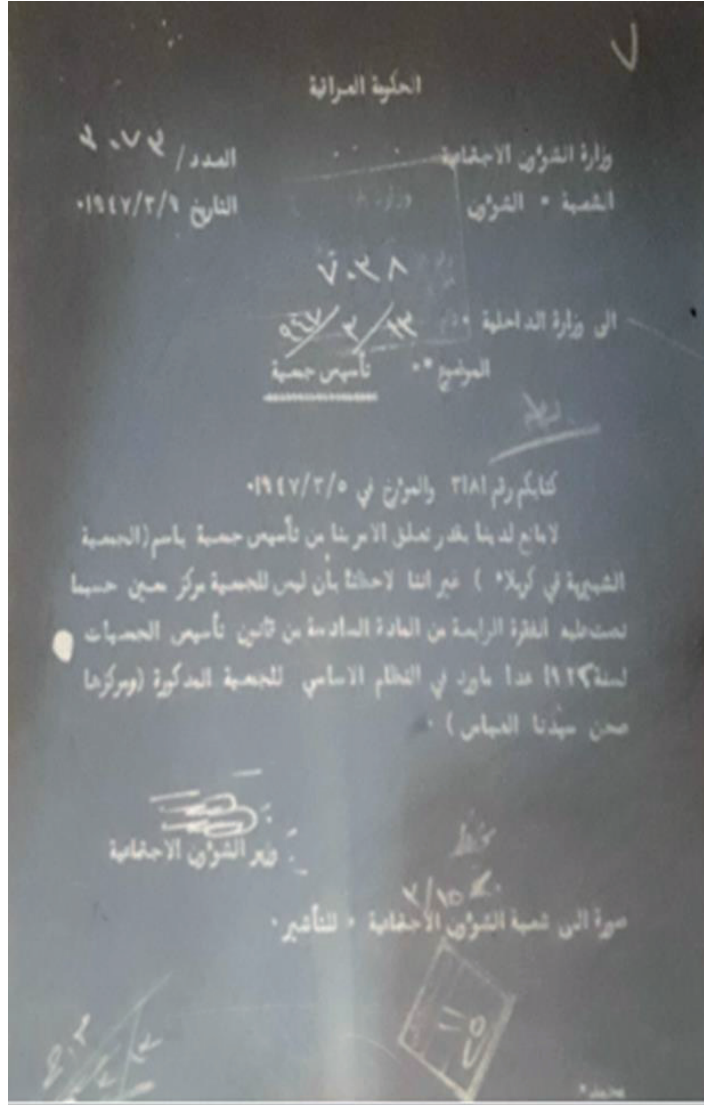 ٧
الحكومة العراقية
وزارة الشؤون الاجتماعية
العدد / ٣٠٧٣
الشعبة ٠ الشؤون
التاريخ ١٩٤٧/٣/٩٠
٨٣٠٧
الى وزارة الداخلية ٠
١٣/٣/٩٤٧
الموضوع ٠٠ تأسيس جمعية
كتابكم رقم ٣١٨١ والمؤرخ في ١٩٤٧/٣/٥٠
لامانع لدينا بقدر تعلق الامر بنا من تأسيس جمعية باسم (الجمعية
الشبيرية في كربلاء ) غير اننا لاحظنا بأن ليس للجمعية مركز معين حسبما
نصت عليه الفقرة الرابعة من المادة السادسة من قانون تأسيس الجمعيات
لسنة ١٩٢٢ عدا ماورد في النظام الاساسي للجمعية المذكورة (ومركزها
صحن سيدنا العباس ) ٠
وزير الشؤون الاجتماعية
٣/١٥
صورة الى شعبة الشؤون الاجتماعية ٠ للتأشير ٠